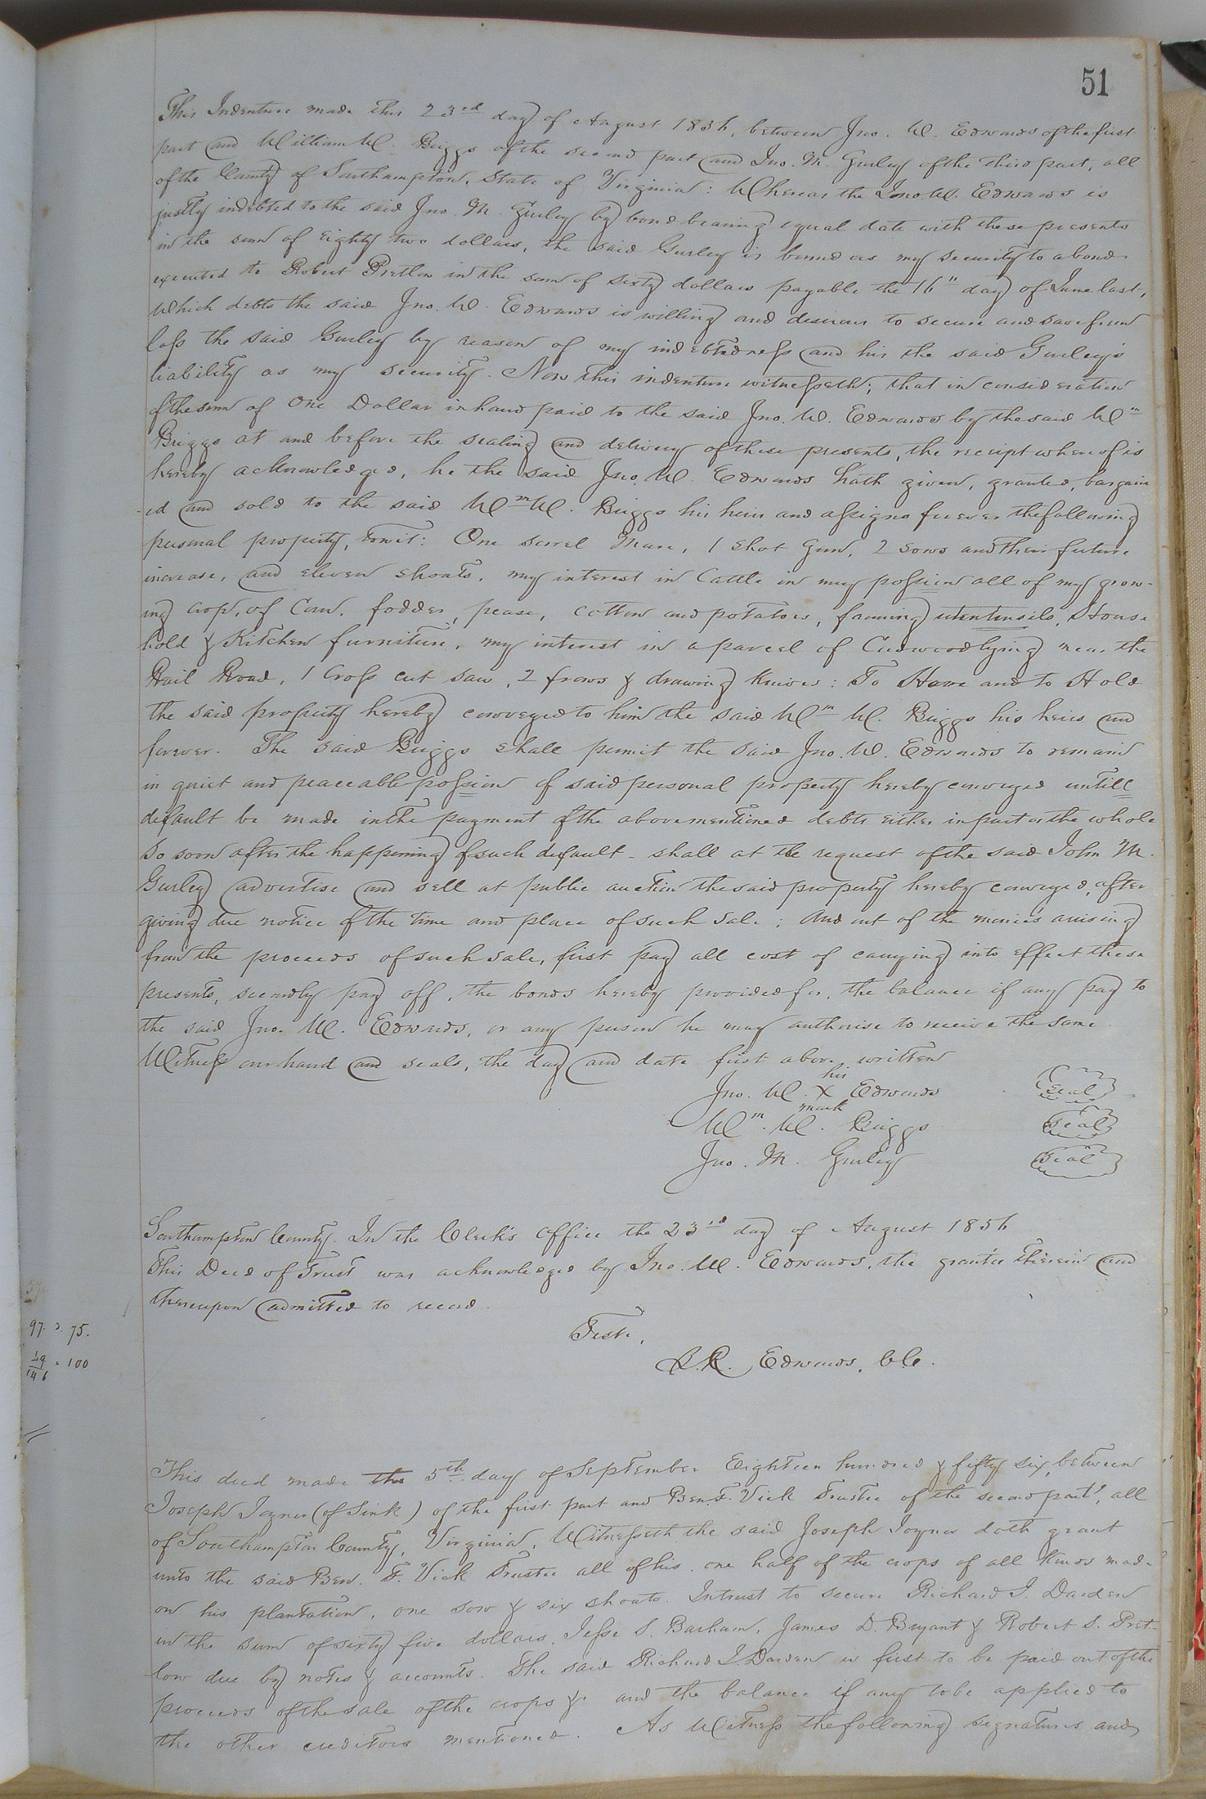 51
This Indenture made this 23rd day of August 1856, between Jno. W. Edwards of the first
part and William W. Briggs of the second part and Jno. M. Gurley of the third part, all
of the County of Southampton, State of Virginia: Whereas the Jno W. Edwards is
justly indebted to the said Jno. M. Gurley by bond bearing equal date with these presents
in the sum of Eighty two dollars, the said Gurley is bound as my security to a bond
executed to Robert Pretlow in the sum of sixty dollars payable the 16" day of June last,
Which debts the said Jno. W. Edwards is willing and desirous to secure and save from
loss the said Gurley by reason of my indebtedness and his the said Gurley's
liability as my security. Now this indenture witnesseth; that in consideration
of the sum of One Dollar in hand paid to the said Jno. W. Edwards by the said Wm
Briggs at and before the sealing and delivery of these presents, the receipt whereof is
hereby acknowledged, he the said Jno. W. Edwards hath given, granted, bargain
-ed and sold to the said Wm W. Briggs his heirs and assigns forever the following
personal property, towit: One sorrel Mare, 1 Shot Gun, 2 sows and their future
increase, and eleven shoats, my interest in Cattle in my possion all of my grow-
ing crop, of Corn, fodder, pease, cotton and potatoes, farming utentensils, House
hold & Kitchen furniture, my interest in a parcel of Cudwood lying near the
Rail Road, 1 Cross cut saw, 2 frows & drawing Knives: To Have and to Hold
the said property hereby conveyed to him the said Wm W. Briggs his heirs and
forever. The said Briggs shall permit the said Jno. W. Edwards to remain
in quiet and peaceable possion of said personal property hereby conveyed untill
default be made in the payment of the above mentioned debts either in part or the whole
So soon after the happening of such default - shall at the request of the said John M.
Gurley advertise and sell at public auction the said property hereby conveyed, after
giving due notice of the time and place of such sale; And out of the monies arising
from the proceeds of such sale, first pay all cost of carrying into effect these
presents, secondly pay off, the bonds hereby provided for, the balance if any pay to
the said Jno. W. Edwards, or any person he may authorise to receive the same
Witness our hand and seals, the day and date first above written
his
Jno. W. X Edwards seal
mark
Wm. W. Briggs seal
Jno. M. Gurley seal
Southampton County. In the Clerk's office the 23rd day of August 1856
This Deed of Trust was acknowledged by Jno. W. Edwards, the grantor therein and
thereupon admitted to record.
97. 75.
49 . 100
146
Teste,
L.R. Edwards, C.C.
This deed made the 5th day of September Eighteen hundred & fifty six, between
Joseph Joyner (of Jink) of the first part and Ben. F. Vick Trustee of the second part, all
of Southampton County, Virginia, Witnesseth the said Joseph Joyner doth grant
unto the said Ben. F. Vick Trustee all of his one half of the crops of all kinds made
on his plantation, one sow & six shoats. Intrust to secure Richard J. Darden
in the sum of sixty five dollars, Jesse S. Barham, James D. Bryant & Robert S. Pret-
low due by notes & accounts. The said Richard J Darden is first to be paid out of the
proceeds of the sale of the crops &c and the balance if any to be applied to
the other creditors mentioned. As Witness the following signatures and